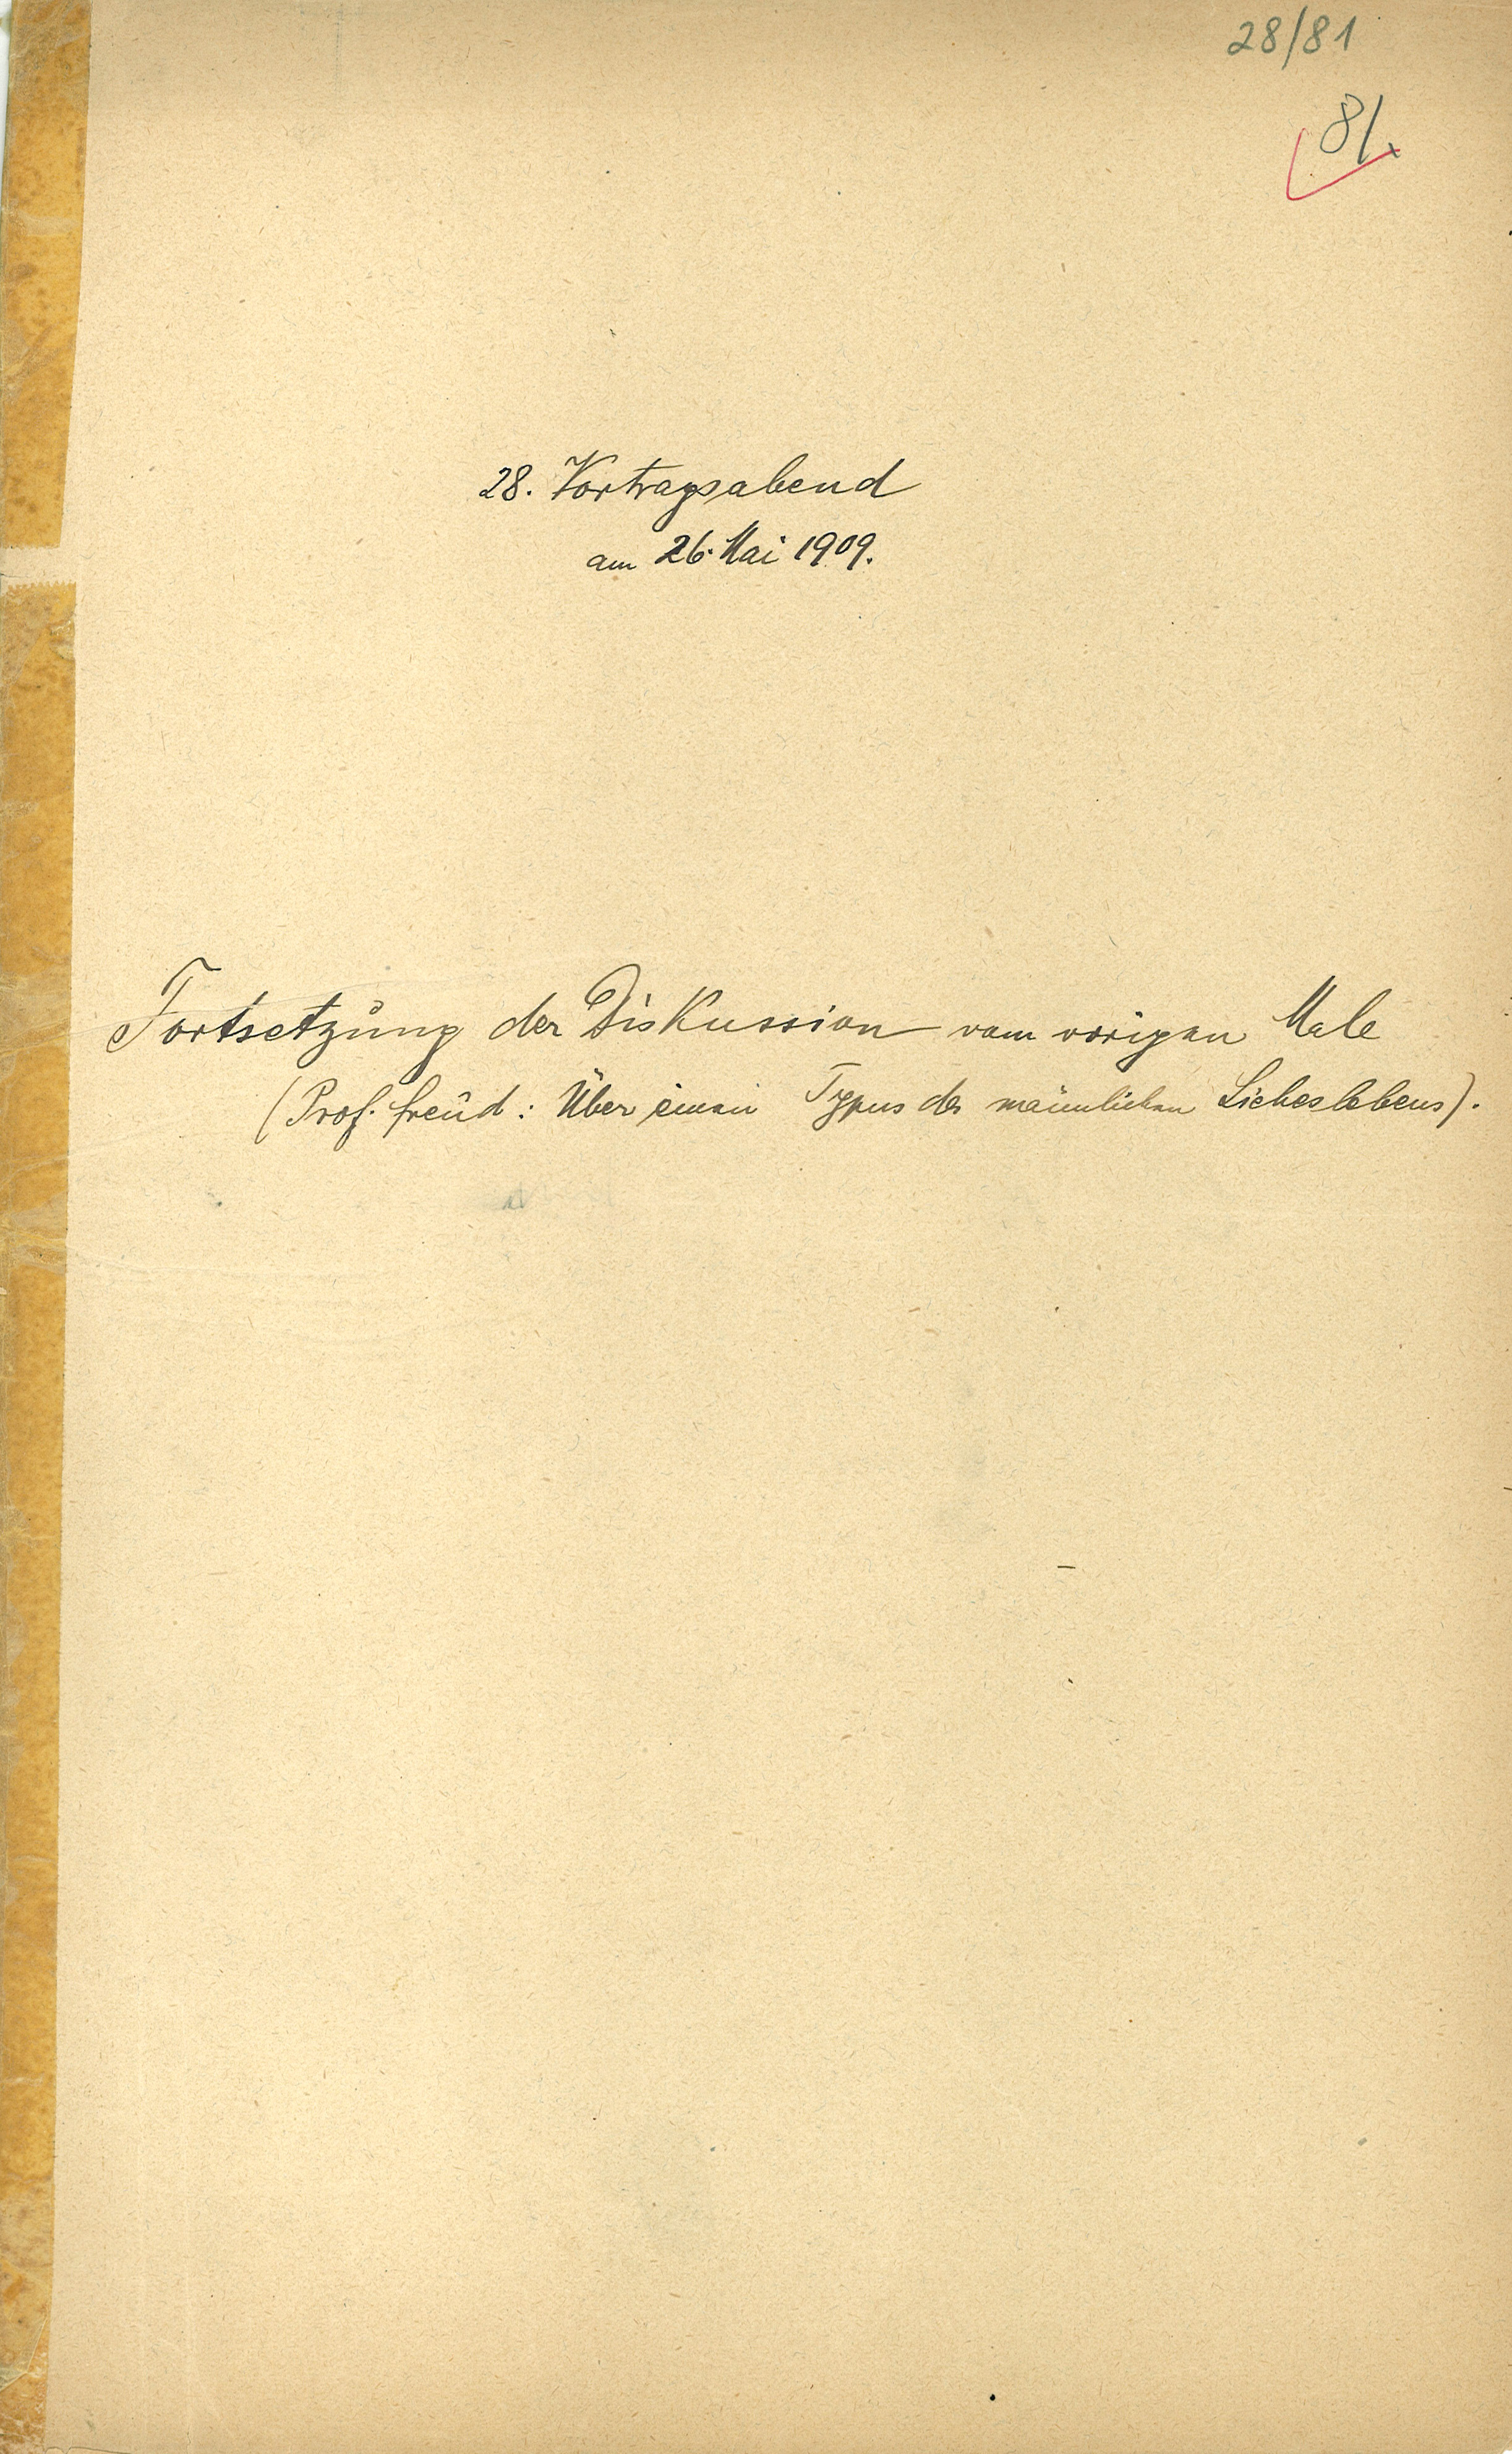 28/81
81.
28. Vortragsabend
am 26. Mai 1909.
Fortsetzung der Diskussion vom vorigen Male
(Prof. Freud: Über einen Typus des männlichen Liebeslebens).